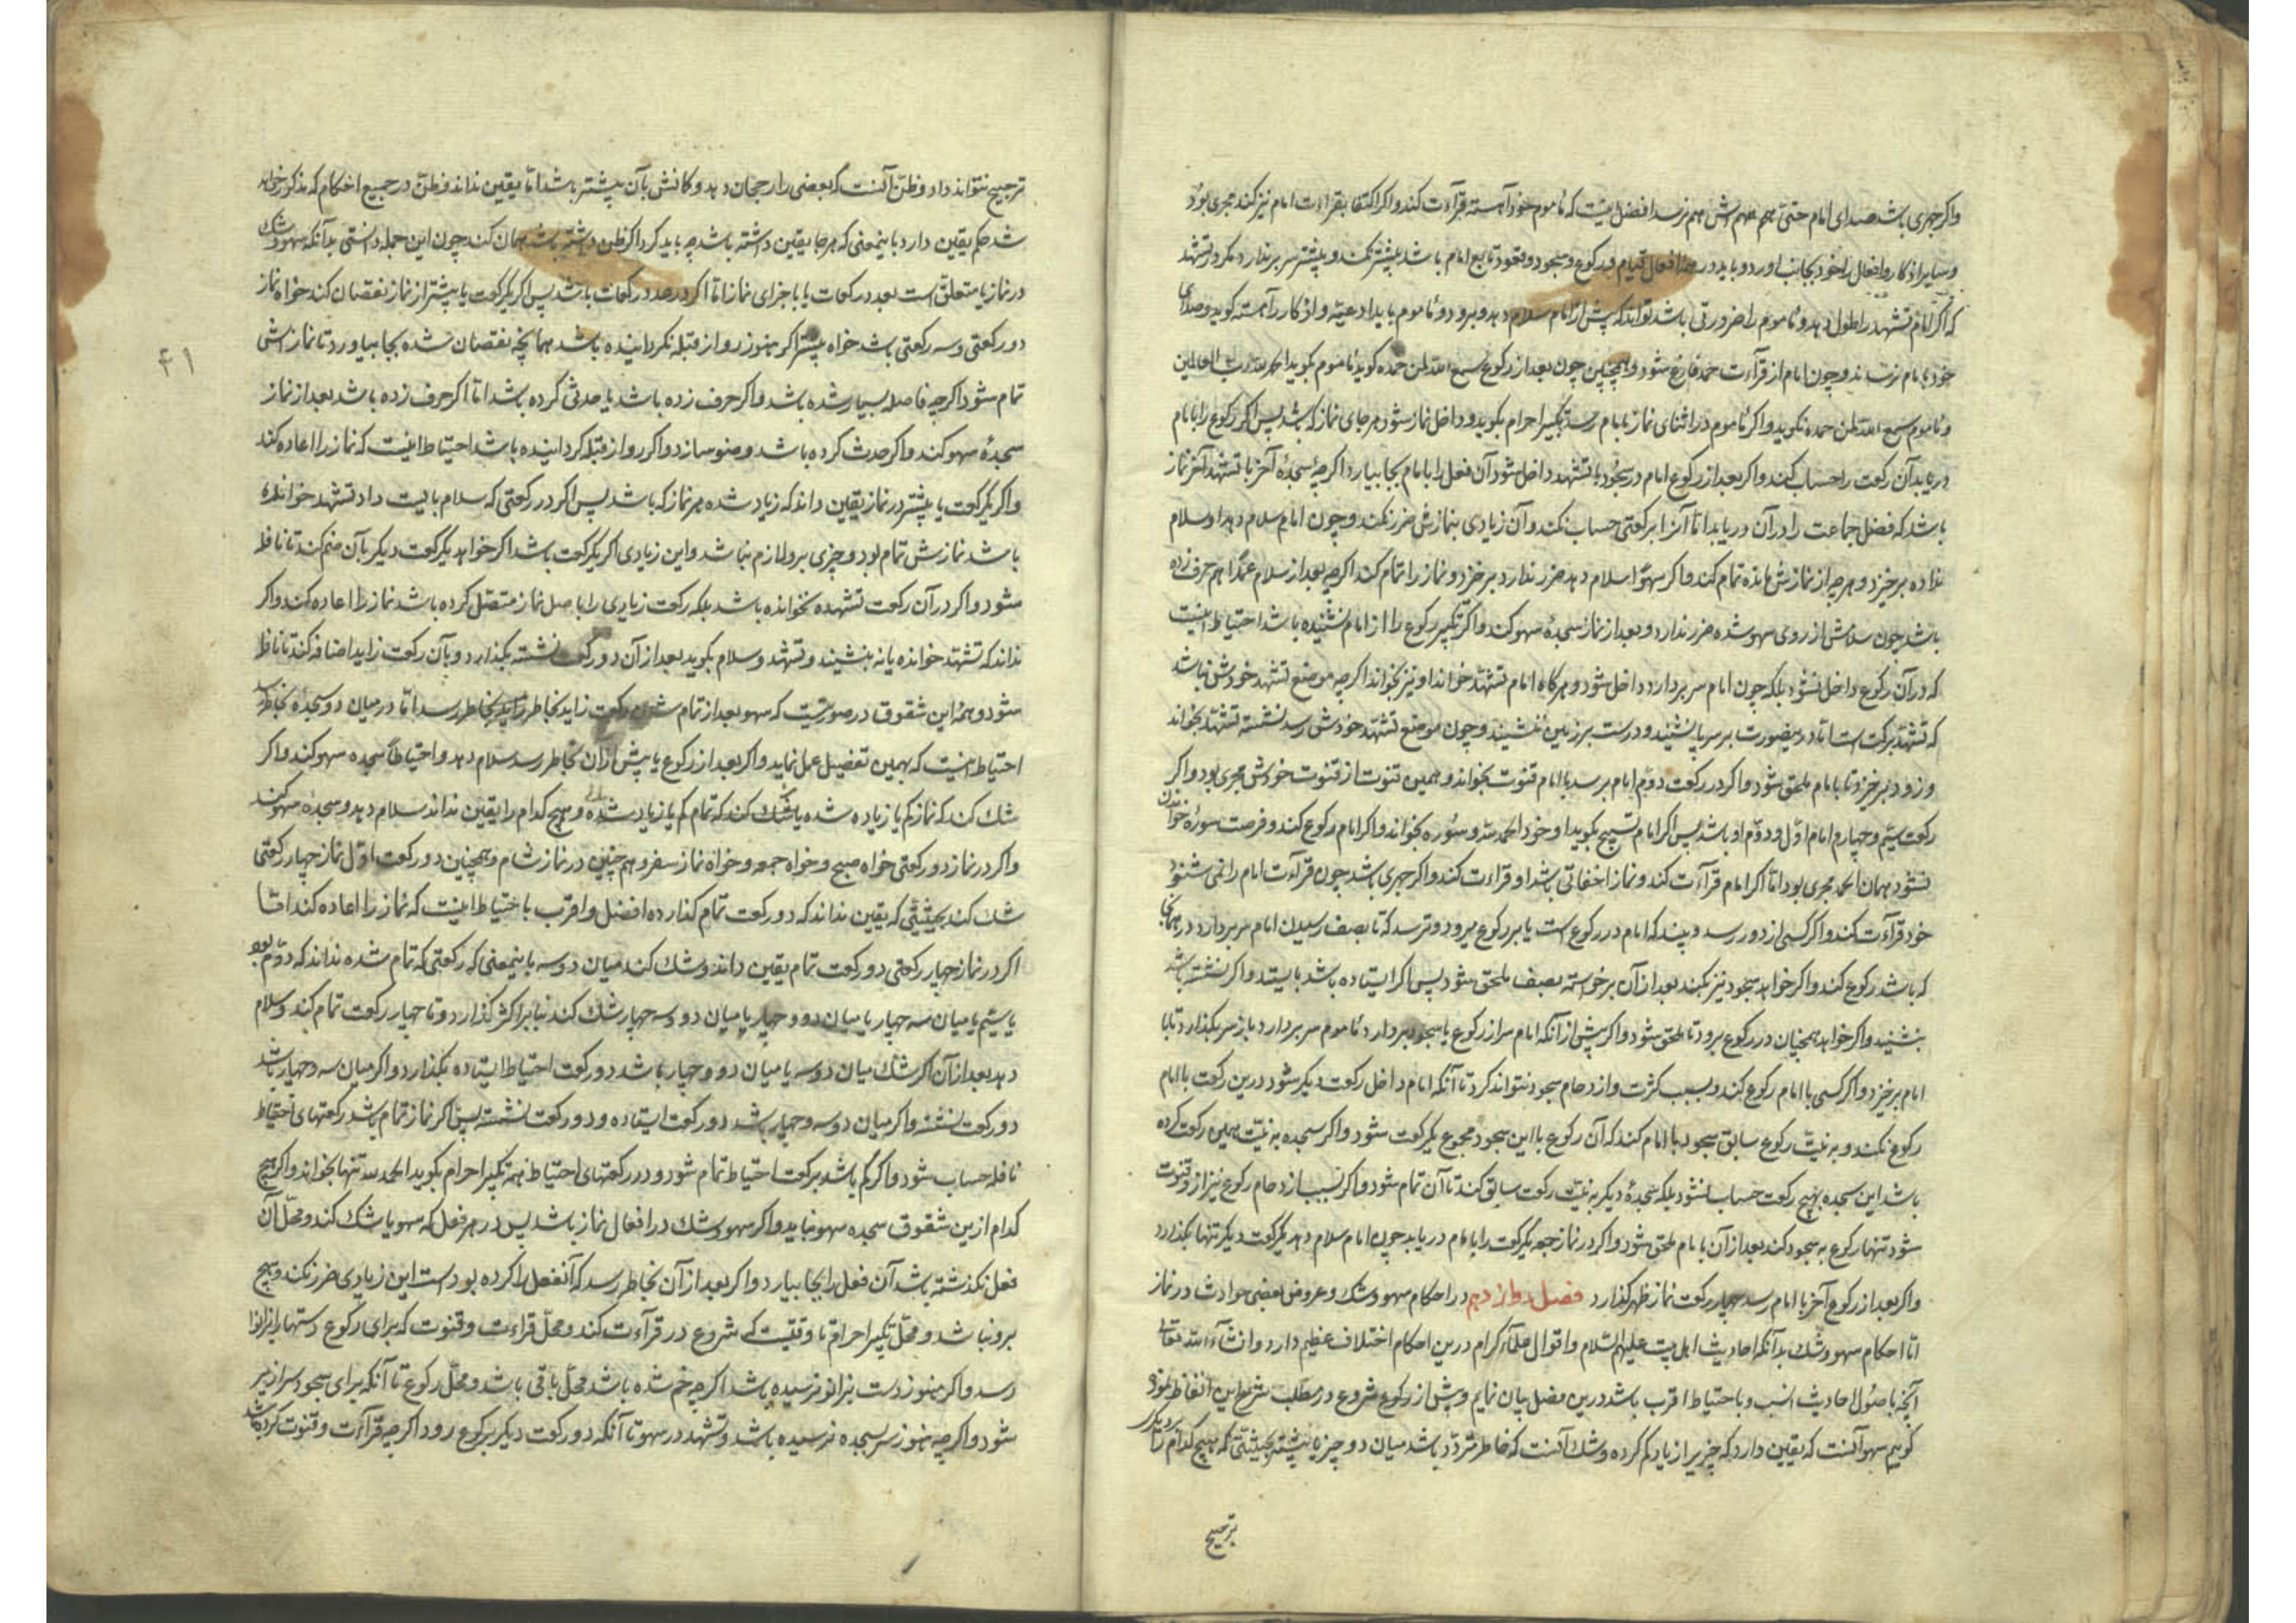 واکر جهری باشد صدای امام حتی همهمه اش هم نرسد افضل اینست که مأموم خود آهسته قرآءت کند و اکر اکتفا بقراءت امام نیز کند مجری بود
و سایر اذکار و افعال را خود بجا نب اورد و باید در افعال قیام و رکوع و سجود و قعود تابع امام باشد پیشتر نکند و پیشتر سر برندارد مکر در تشهد
که اکر امام تشهد را طول دهد و مأموم را ضرورتی باشد تواند که پیش از امام سلام دهد و برود و مأموم باید ادعیه و اذکار را آهسته کوید و صدای
خود بامام نرساند و چون امام از قرآءت حمد فارغ شود و همچنین چون بعد از رکوع سمع الله لمن حمده کوید مأموم بکوید الحمد لله رب العالمین
و مأموم سمع الله لمن حمده نکوید و اکر مأموم در اثنای نماز بامام رسد تکبیر احرام بکوید و داخل نماز شود هر جای نماز که باشد پس اکر رکوع را با امام
دریابد آن رکعت را حساب کند و اکر بعد از رکوع امام در سجود یا تشهد داخل شود آن فعل را با امام بجا بیارد اکرچه سجده آخر یا تشهد آخر نماز
باشد که فضل جماعت را در آن دریابد اما آنرا برکعتی حساب نکند و آن زیادی بنمازش ضرر نکند و چون امام سلام دهد او سلام
نداده برخیزد و هرچه از نمازش مانده تمام کند و اکر سهوا سلام دهد ضرر ندارد برخیزد و نماز را تمام کند اکرچه بعد از سلام عمدا هم حرف زده
باشد چون سلامش از روی سهو شده ضرر ندارد و بعد از نماز سجدهٔ سهو کند و اکر تکبیر رکوع را از امام نشنیده باشد احتیاط اینست
که در آن رکوع داخل نشود بلکه چون امام سر بردارد داخل شود و هرکاه امام تشهد خواند او نیز بخواند اکرچه موضع تشهد خودش نباشد
که تشهد برکت است اما درینصورت بر سر پا نشیند و درست بر زمین ننشیند و چون موضع تشهد خودش رسد نشسته تشهد بخواند
و زود برخیزد تا بامام ملحق شود و اکر در رکعت دوم امام برسد با امام قنوت بخواند و همین قنوت از قنوت خودش مجری بود و اکر
رکعت سیم و چهارم امام اول و دوم او باشد پس اکر امام تسبیح بکوید او خود الحمد لله و سوره بخواند و اکر امام رکوع کند و فرصت سوره خواندن
نشود همان الحمد مجری بود اما اکر امام قرآءت کند و نماز اخفاتی باشد او قراءت کند و اکر جهری باشد چون قرآءت امام را نمی شنود
خود قرآءت کند و اکر کسی از دور رسد و بیند که امام در رکوع است یا بر رکوع میرود و ترسد که تا بصف رسیدن امام سر بردارد در همانجا
که باشد رکوع کند و اکر خواهد سجود نیز بکند بعد از آن برخواسته بصف ملحق شود پس اکر ایستاده باشد بایستد و اکر نشسته باشد
بنشیند و اکر خواهد همچنان در رکوع برود تا ملحق شود و اکر پیش از آنکه امام سر از رکوع یا سجود بردارد مأموم سر بردارد باز سر بکذارد تا با
امام برخیزد و اکر کسی با امام رکوع کند و بسبب کثرت و ازدحام سجود نتواند کرد تا آنکه امام داخل رکعت دیکر شود درین رکعت با امام
رکوع نکند و به نیت رکوع سابق سجود با امام کند که آن رکوع با این سجود مجموع یکرکعت شود و اکر سجده به نیت همین رکعت کرده
باشد این سجده بهیچ رکعت حساب نشود بلکه سجدهٔ دیکر به نیت رکعت سابق کند تا آن تمام شود و اکر بسبب ازدحام رکوع نیز از و فوت
شود تنها رکوع به سجود کند بعد از آن بامام ملحق شود و اکر در نماز جمعه یکرکعت را با امام دریابد چون امام سلام دهد یکرکعت دیکر تنها بکذارد
و اکر بعد از رکوع آخر با امام رسد چهار رکعت نماز ظهر کذارد فصل دوازدهم در احکام سهو و شک و عروض بعضی حوادث در نماز
اما احکام سهو و شک بدآنکه احادیث اهل بیت علیهم السلام و اقوال علمآء کرام درین احکام اختلاف عظیم دارد و انشآء الله تعالی
آنچه باصول احادیث انسب و باحتیاط اقرب باشد درین فصل بیان نمایم و پیش از وقوع شروع در مطلب شرح این الفاظ نموده
کوییم سهو آنست که یقین دارد که چیزیرا زیاد یا کم کرده و شک آنست که خاطر متردد باشد میان دو چیز یا بیشتر بحیثیتی که هیچ کدام را بر دیکر
ترجیح
ترجیح نتواند داد و ظن آنست که بعضی را رجحان دهد و کمانش بآن بیشتر باشد اما یقین نداند و ظن در جمیع احکام که مذکور خواهد
شد حکم یقین دارد باینمعنی که هر جا یقین داشته باشد چه باید کرد اکر ظن داشته باشد همان کند چون این جمله دانستی بدآنکه سهو و شک
در نماز یا متعلق است بعدد رکعات یا باجزای نماز اما اکر در عدد رکعات باشد پس اکر یکرکعت یا بیشتر از نماز نقصان کند خواه نماز
دو رکعتی و سه رکعتی باشد خواه بیشتر اکر هنوز رو از قبله نکردانیده باشد همانچه نقصان شده بجا بیاورد تا نمازش
تمام شود اکرچه فاصله بسیار شده باشد و اکر حرف زده باشد یا حدثی کرده باشد اما اکر حرف زده باشد بعد از نماز
سجدهٔ سهو کند و اکر حدث کرده باشد وضو سازد و اکر رو از قبله کردانیده باشد احتیاط اینست که نماز را اعاده کند
و اکر یکرکعت یا بیشتر در نماز یقین داند که زیاد شده هر نماز که باشد پس اکر در رکعتی که سلام بایست داد تشهد خوانده
باشد نمازش تمام بود و چیزی برو لازم نباشد و این زیادی اکر یکرکعت باشد اکر خواهد یکرکعت دیکر بآن ضم کند تا نافله
شود و اکر در آن رکعت تشهد نخوانده باشد بلکه رکعت زیادی را باصل نماز متصل کرده باشد نماز را اعاده کند و اکر
نداند که تشهد خوانده یا نه بنشیند و تشهد و سلام بکوید بعد از آن دو رکعت نشسته بکذارد و بآن رکعت زاید اضافه کند تا نافله
شود و همهٔ این شقوق در صورتیست که سهو بعد از تمام شدن رکعت زاید بخاطر رسد اما در میان دو سجده بخاطر رسد
احتیاط اینست که بهمین تفصیل عمل نماید و اکر بعد از رکوع یا پیش از آن بخاطر رسد سلام دهد و احتیاطا سجده سهو کند و اکر
شک کند که نماز کم یا زیاده شده یا شک کند که تمام کم یا زیاد شده و هیچ کدام را یقین نداند سلام دهد و سجدهٔ سهو کند
و اکر در نماز دو رکعتی خواه صبح و خواه جمعه و خواه نماز سفر و هم چنین در نماز شام و همچنین دو رکعت اول نماز چهار رکعتی
شک کند بحیثیتی که یقین نداند که دو رکعت تمام کذارده افضل و اقرب باحتیاط اینست که نماز را اعاده کند اما
اکر در نماز چهار رکعتی دو رکعت تمام یقین داند و شک کند میان دو سه باینمعنی که رکعتی که تمام شده نداند که دوم بود
یا سیم یا میان سه چهار یا میان دو و چهار یا میان دو و سه چهار شک کند بنا بر اکثر کذارد و تا چهار رکعت تمام کند و سلام
دهد بعد از آن اکر شک میان دو سه یا میان دو و چهار باشد دو رکعت احتیاط ایستاده بکذارد و اکر میان سه و چهار باشد
دو رکعت نشسته و اکر میان دو سه و چهار باشد دو رکعت ایستاده و دو رکعت نشسته پس اکر نماز تمام باشد رکعتهای احتیاط
نافله حساب شود و اکر کم باشد برکعت احتیاط تمام شود و در رکعتهای احتیاط همه تکبیر احرام بکوید الحمد لله تنها بخواند و اکر هیچ
کدام ازین شقوق سجده سهو نباید و اکر سهو و شک در افعال نماز باشد پس در هر فعل که سهو یا شک کند و محل آن
فعل نکذشته باشد آن فعل را بجا بیارد و اکر بعد از آن بخاطر رسد که آنفعل را کرده بوده است این زیادی ضرر نکند و هیچ
برو نباشد و محل تکبیر احرام تا وقتیست که شروع در قرآءت کند و محل قراءت و قنوت که برای رکوع دستها بزانوا
رسد و اکر هنوز دست بزانو نرسیده باشد اکرچه خم شده باشد محل باقی باشد و محل رکوع تا آنکه برای سجود سرازیر
شود و اکرچه هنوز سر بسجده نرسیده باشد و تشهد در سهو تا آنکه دو رکعت دیکر برکوع رود اکرچه قرآءت و قنوت کرده باشد
۴۱